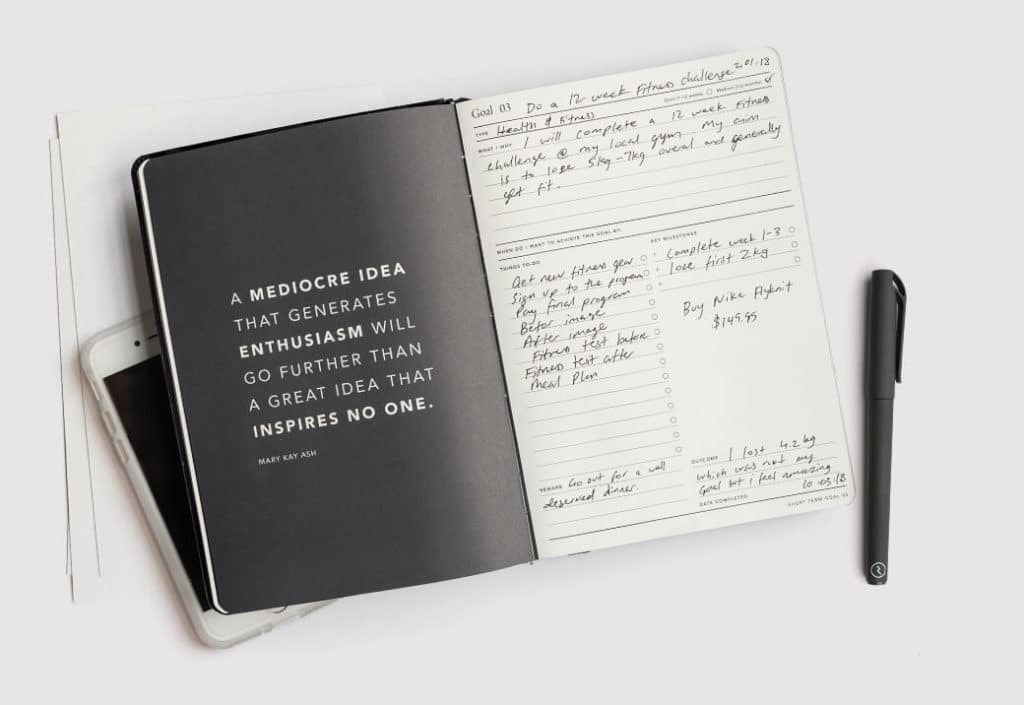 A MEDIOCRE IDEA
THAT GENERATES
ENTHUSIASM WILL
GO FURTHER THAN
A GREAT IDEA THAT
INSPIRES NO ONE.
MARY KAY ASH
Goal 03 Do a 12 week Fitness challenge
TYPE Health & Fitness
WHAT / WHY I will complete a 12 week Fitness
challenge @ my local gym. My aim
is to lose 5kg - 7kg overal and generally
get fit.
WHEN DO I WANT TO ACHIEVE THIS GOAL BY:
THINGS TO-DO
Get new fitness gear
Sign up to the program
Pay final program
Befor image
After image
Fitness test before
Fitness test after
Meal Plan
KEY MILESTONES
Complete week 1-3
lose first 2kg
Buy Nike Flyknit
$149.95
REWARD Go out for a well
deserved dinner.
OUTCOME I lost 4.2kg
which was not my
Goal but i feel amazing
DATE COMPLETED 10.03.18
SHORT TERM GOAL 03
R